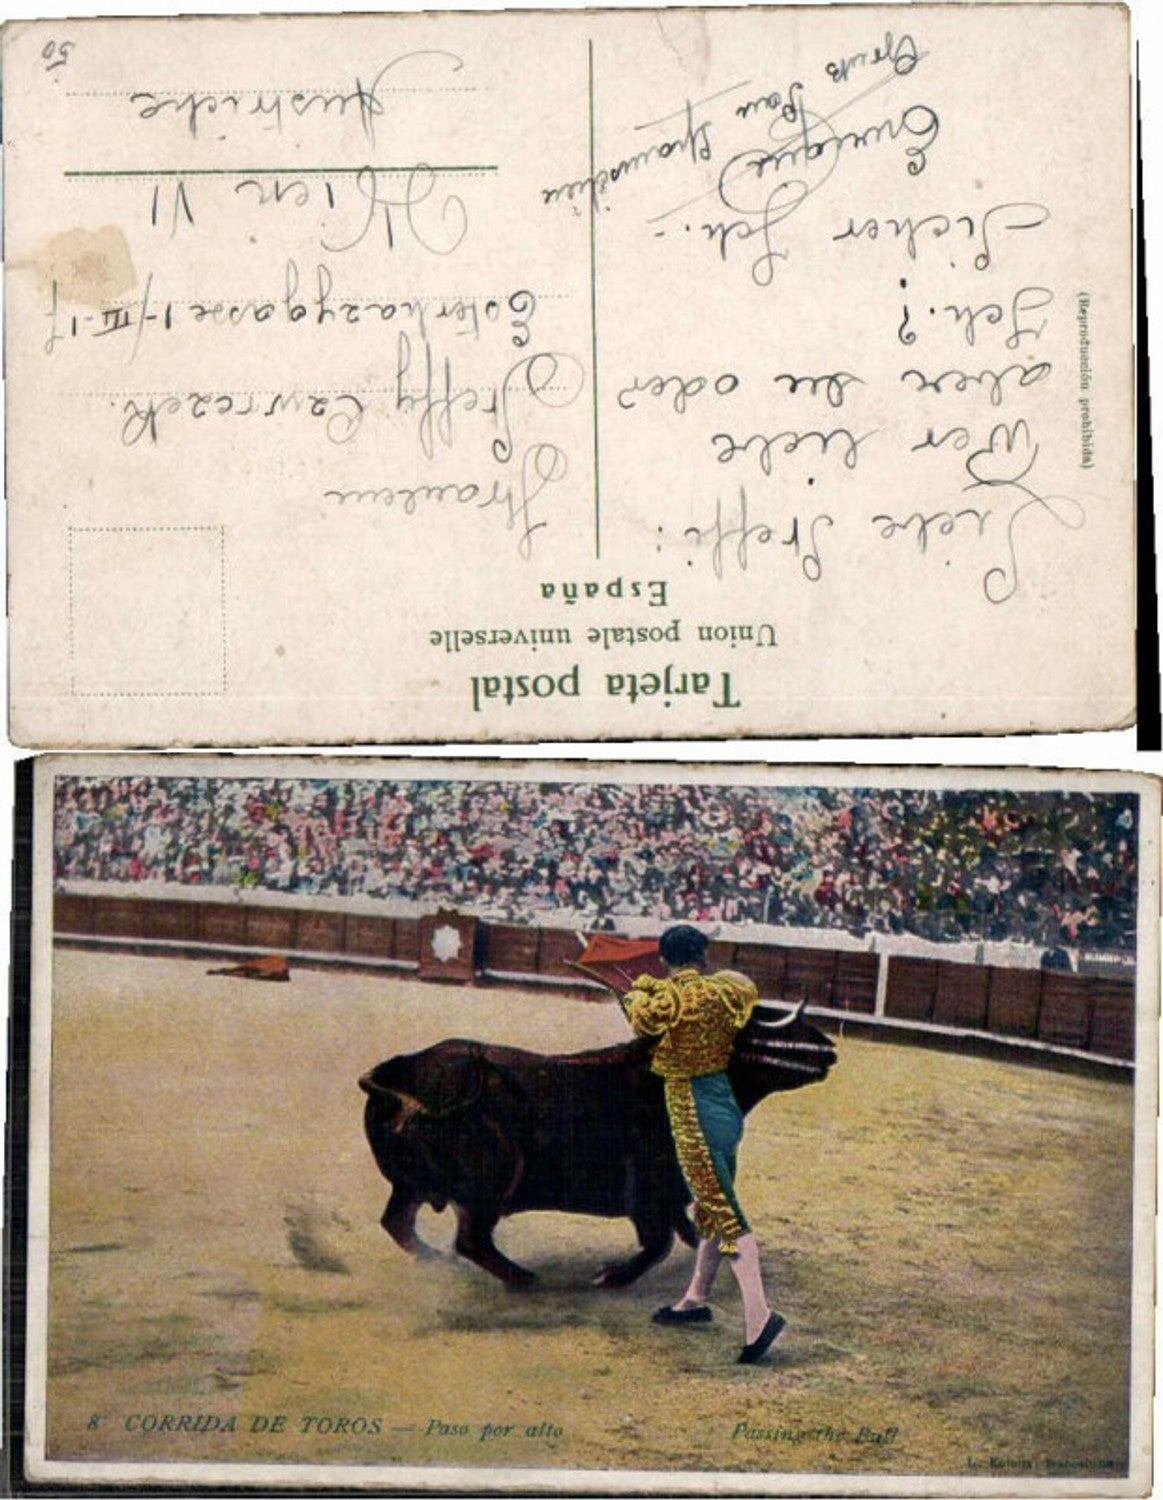 Tarjeta postal
Union postale universelle
España
Liebe Steffi:
Wer liebe
aber du oder
Ich?
Sicher Ich.-
Enrique
Gruß
aus Spanien
Fraulein
Steffy Lawrezek.
Esterhazygasse 1-/III-17
Wien VI
Austriche
(Reproducción prohibida)
50
8 CORRIDA DE TOROS — Paso por alto
Passing the Bull